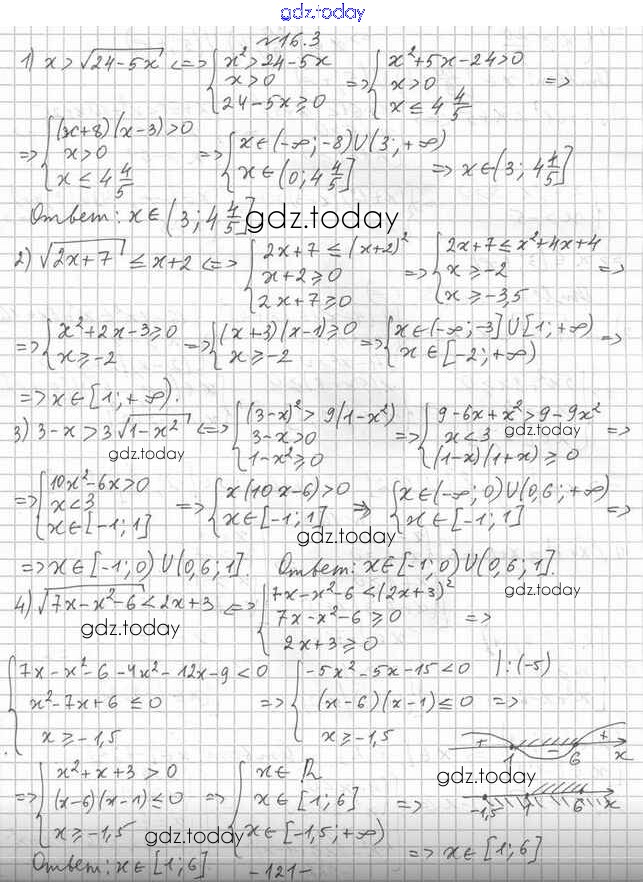 gdz.today
№16.3
1) x > √(24-5x) <=> { x² > 24-5x; x > 0; 24-5x ⩾ 0 => { x²+5x-24 > 0; x > 0; x ≤ 4 4/5 =>
=> { (x+8)(x-3) > 0; x > 0; x ≤ 4 4/5 => { x∈(-∞; -8)∪(3; +∞); x∈(0; 4 4/5] => x∈(3; 4 4/5]
Ответ: x∈(3; 4 4/5] gdz.today
2) √(2x+7) ≤ x+2 <=> { 2x+7 ≤ (x+2)²; x+2 ⩾ 0; 2x+7 ⩾ 0 => { 2x+7 ≤ x²+4x+4; x ⩾ -2; x ⩾ -3,5 =>
=> { x²+2x-3 ⩾ 0; x ⩾ -2 => { (x+3)(x-1) ⩾ 0; x ⩾ -2 => { x∈(-∞; -3]∪[1; +∞); x∈[-2; +∞) =>
=> x∈[1; +∞).
3) 3-x > 3√(1-x²) <=> { (3-x)² > 9(1-x²); 3-x > 0; 1-x² ⩾ 0 => { 9-6x+x² > 9-9x²; x < 3; (1-x)(1+x) ⩾ 0 =>
gdz.today
gdz.today
=> { 10x²-6x > 0; x < 3; x∈[-1; 1] => { x(10x-6) > 0; x∈[-1; 1] => { x∈(-∞; 0)∪(0,6; +∞); x∈[-1; 1] =>
gdz.today
=> x∈[-1; 0)∪(0,6; 1]. Ответ: x∈[-1; 0)∪(0,6; 1].
4) √(7x-x²-6) < 2x+3 <=> { 7x-x²-6 < (2x+3)²; 7x-x²-6 ⩾ 0; 2x+3 ⩾ 0 =>
gdz.today
gdz.today
{ 7x-x²-6-4x²-12x-9 < 0; x²-7x+6 ≤ 0; x ⩾ -1,5 => { -5x²-5x-15 < 0 |:(-5); (x-6)(x-1) ≤ 0; x ⩾ -1,5 =>
+ 1 - 6 + x
=> { x²+x+3 > 0; (x-6)(x-1) ≤ 0; x ⩾ -1,5 => { x∈R; x∈[1; 6]; x∈[-1,5; +∞) =>
gdz.today
-1,5 1 6 x
gdz.today
=> x∈[1; 6]
Ответ: x∈[1; 6]
-121-